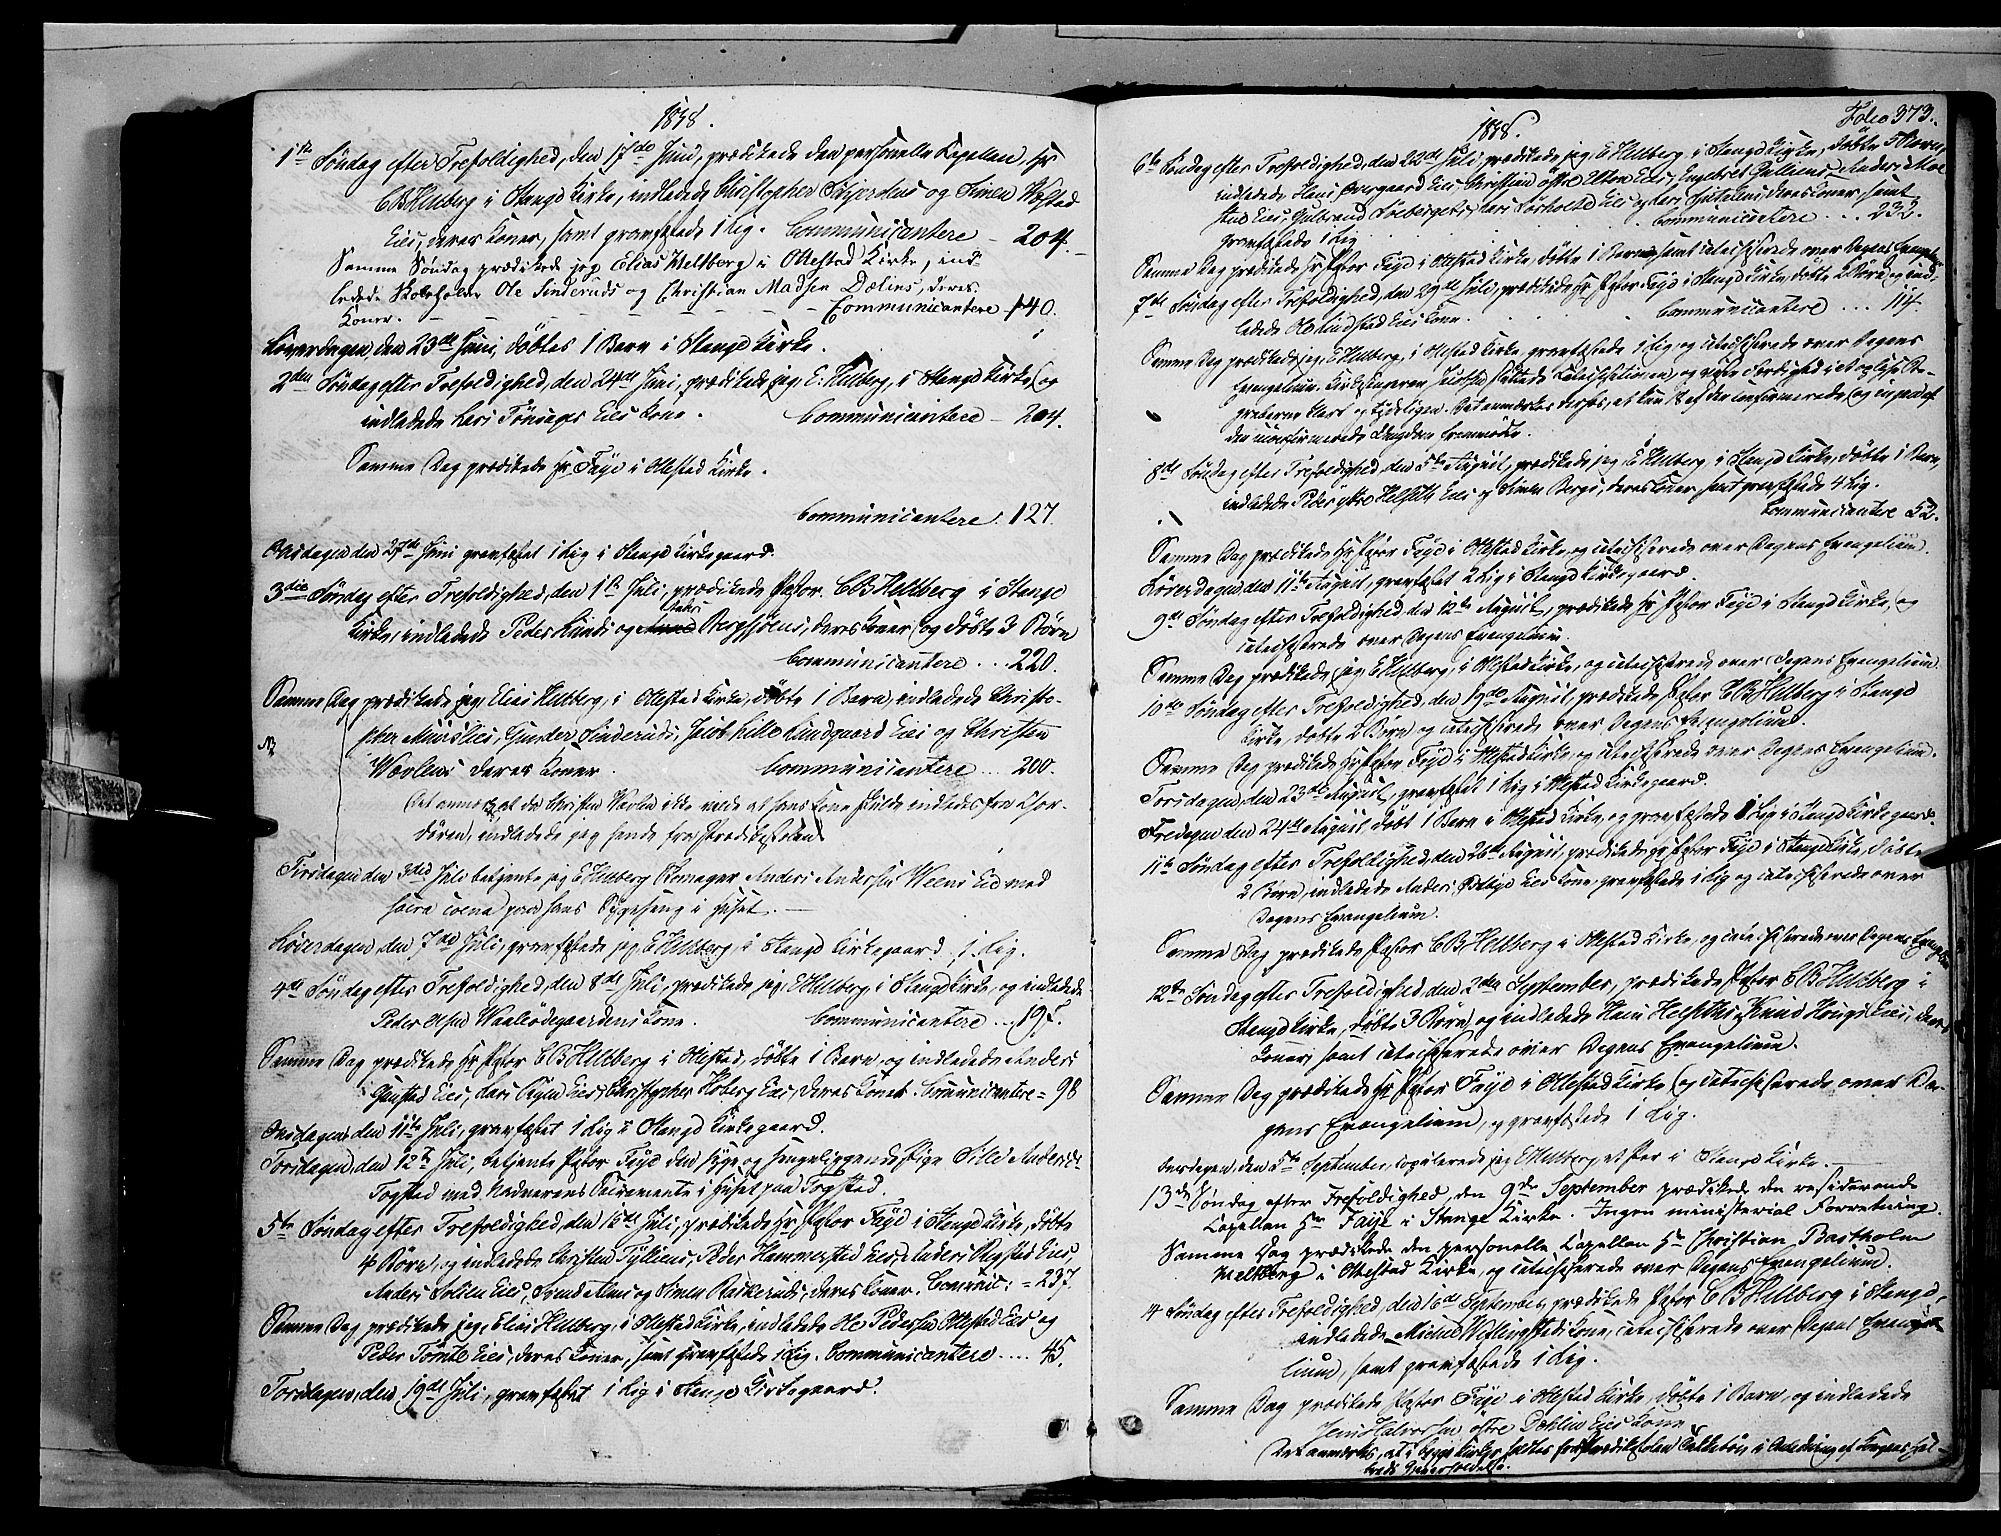 1838.
1ste Søndag efter Trefoldighed, den 17de Juni, prædikede den personelle Capellan, Hr
CBHeltberg i Stange Kirke, indledede Christopher Skjerdens og Simen Wøstad
Eies, deres Koner, samt gravfæstede 1 Lig. Communicantere - 204.
Samme Søndag prædikede jeg Elias Heltberg i Ottestad Kirke, ind-
ledede Skoleholder Ole Sinderuds og Christian Madsen Dælins, deres
Koner. - - - - - - - Communicantere - 140.
Løverdagen den 23de Juni, døbtes 1 Barn i Stange Kirke.
2den Søndag efter Trefoldighed, den 24de Juni, prædikede jeg, E. Heltberg, i Stange Kirke, og
indledede Lars Tønsager Eies Kone. Communicantere - 204.
Samme Dag prædikede Hr Faye i Ottestad Kirke.
Communicantere. 127.
Onsdagen den 27de Juni gravfæstet 1 Lig i Stange Kirkegaard.
3die Søndag efter Trefoldighed, den 1ste Juli, prædikede Pastor CBHeltberg i Stange
Kirke, indledede Peder Lunds og Bergsjøens, deres Koner og døbte 3 Børn
Communicantere ... 220.
Samme Dag prædikede jeg, Elias Heltberg, i Ottestad Kirke, døbte 1 Barn, indledede Christo-
pher Eies, Gunder Sinderuds, Jacob Lille Lundgaard Eies og Christen
Wævlens deres Koner. Communicantere ... 200.
Det anmærkes at da Christen Wævlen ikke vilde at hans Kone skulde indledes fra Chor-
døren, indledede jeg hende fra Prædikestolen
Tirsdagen den 3die Juli betjente jeg E Heltberg Skomager Anders Andersen Weens Eie med
sacra coena paa hans Sygeseng i Huset. -
Løverdagen den 7de Juli, gravfæstede jeg, E Heltberg, i Stange Kirkegaard, 1 Lig.
4de Søndag efter Trefoldighed, den 8de Juli, prædikede jeg, E Heltberg, i Stange Kirke, og indledede
Peder Olsen Waalødegaardens Kone. Communicantere ... 195.
Samme Dag prædikede Hr Pastor CBHeltberg i Ottestad, døbte 1 Barn og indledede Anders
Gustad Eies, Lars Eies, Christopher Høberg Eies, deres Koner. Communicantere = 98
Onsdagen den 11te Juli, gravfæstet 1 Lig i Stange Kirkegaard.
Torsdagen, den 12te Juli, betjente Pastor Faye den syge og sengeliggende Pige Anders.
Fogstad med Nadverens Sacramente i Huset paa Fogstad.
5te Søndag efter Trefoldighed, den 15de Juli, prædikede Hr Pastor Faye i Stange Kirke, døbte
4 Børn, og indledede Christen Eies, Peder Hammerstad Eies, Anders Eies,
Anders Solien Eies, og Simen Deres Koner. Communic: = 237.
Samme Dag prædikede jeg, Elias Heltberg, i Ottestad Kirke, indledede Ole Pedersen Ottestad Eies og
Peder Tomte Eies, deres Koner, samt gravfæstede 1 Lig. Communicantere .... 45.
Torsdagen, den 19de Juli, gravfæstet 1 Lig i Stange Kirkegaard.
1838.
Folio 373.
6te Søndag efter Trefoldighed, den 22de Juli, prædikede jeg, E Heltberg i Stange Kirke, døbte 5 Børn,
indledede Hans Overgaard Eies, Christian østre Eies, Engebret Anders Moe
Eies, Gulbrand Solberget, Lars Eies og deres Koner, samt
gravfæstede 1 Lig. Communicantere ... 232.
Samme Dag prædikede Hr Pastor Faye i Ottestad Kirke, døbte 1 Barn samt catechiserede over Dagens Evangelium
7de Søndag efter Trefoldighed, den 29de Juli, prædikede Hr Pastor Faye i Stange Kirke, døbte 2 Børn og ind-
ledede Ole Lindstad Eies Kone. Communicantere ... 114.
Samme Dag prædikede jeg, E Heltberg, i Ottestad Kirke gravfæstede 1 Lig og catechiserede over Dagens
Evangelium. Kirkesangeren Catechisationen, og
klart og tydeligen. Det anmærkes derhos, at kun 12 af de confirmerede, og ingen af
den uconfirmerede Ungdom fremmødte.
8de Søndag efter Trefoldighed, den 5te August, prædikede jeg, E Heltberg i Stange Kirke, døbte 1 Barn,
indledede Peder ytre Helseth Eies og Simen Bergs, deres Koner, samt gravfæstede 4 Lig.
Communicantere 52.
Samme Dag prædikede Hr Pastor Faye i Ottestad Kirke, og catechiserede over Dagens Evangelium.
Løverdagen, den 11te August, gravfæstet 2 Lig i Stange Kirkegaard.
9de Søndag efter Trefoldighed, den 12te August, prædikede Hr Pastor Faye i Stange Kirke, og
catechiserede over Dagens Evangelium.
Samme Dag prædikede jeg, E Heltberg, i Ottestad Kirke, og catechiserede over Dagens Evangelium.
10de Søndag efter Trefoldighed, den 19de August, prædikede Pastor CBHeltberg i Stange
Kirke, døbte 2 Børn og catechiserede over Dagens Evangelium.
Samme Dag prædikede Hr Pastor Faye i Ottestad Kirke, og catechiserede over Dagens Evangelium.
Torsdagen, den 23de August, gravfæstet 1 Lig i Ottestad Kirkegaard.
Fredagen den 24de August, døbt 1 Barn i Ottestad Kirke, og gravfæstede 1 Lig i Stange Kirkegaard.
11te Søndag efter Trefoldighed, den 26de August, prædikede Hr Pastor Faye i Stange Kirke, døbte
2 Børn, indledede Anders Eies Kone, gravfæstede 1 Lig og catechiserede over
Dagens Evangelium.
Samme Dag prædikede Pastor CBHeltberg i Ottestad Kirke, og catechiserede over Dagens Evangelium
12te Søndag efter Trefoldighed, den 2den September, prædikede Pastor CBHeltberg i
Stange Kirke, døbte 3 Børn, og indledede Hans Helseths, Knud Hougs Eies, deres
Koner, samt catechiserede over Dagens Evangelium.
Samme Dag prædikede Hr Pastor Faye i Ottestad Kirke, og catechiserede over Da-
gens Evangelium, og gravfæstede 1 Lig.
Onsdagen, den 5te September, copulerede jeg E Heltberg, et Par i Stange Kirke. -
13de Søndag efter Trefoldighed, den 9de September prædikede den residerende
Capellan Hr Faye i Stange Kirke. Ingen ministerial Forretning.
Samme Dag prædikede den personelle Capellan Hr Christian Bartholm
Heltberg i Ottestad Kirke, og catechiserede over Dagens Evangelium.
14 Søndag efter Trefoldighed, den 16de September, prædikede Pastor CBHeltberg i Stange,
indledede Michel Kone, catechiserede over Dagens Evange-
lium, samt gravfæstede 1 Lig.
Samme Dag prædikede Pastor Faye i Ottestad Kirke, døbte 1 Barn, og indledede
Jens Halvorsen østre Dæhlin Eies Kone
Det anmærkes, at i begge Kirker holdtes fra Prædikestolen Takkebøn i Anledning af Kongens Hel-
breds